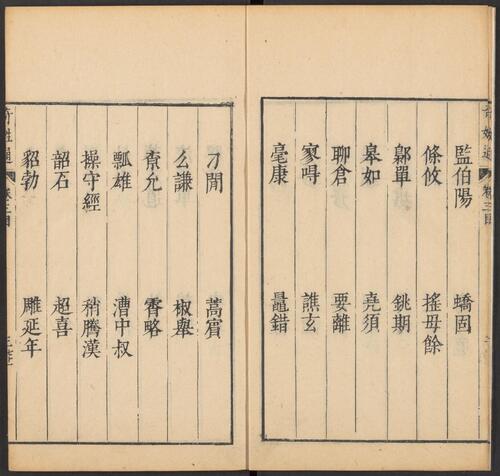 奇姓通
卷三目
監伯陽 蟜固
條攸 搖毋餘
鄡單 銚期
皋如 堯須
聊倉 要離
譙玄
毫康 鼂錯
刁閒 蒿賓
么謙 椒舉
允 略
瓢雄 漕中叔
操守經 稍騰漢
韶石 超喜
貂勃 雕延年
奇姓通
卷三目